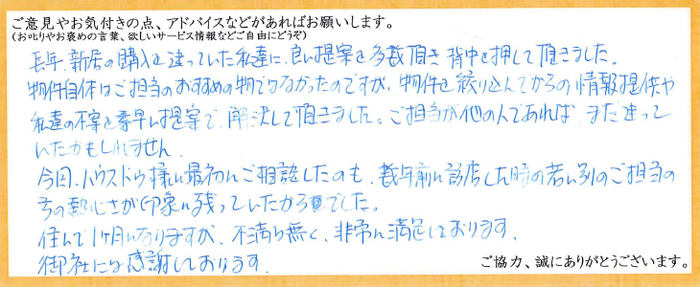 ご意見やお気付きの点、アドバイスなどがあればお願いします。
(お叱りやお褒めの言葉、欲しいサービス情報などご自由にどうぞ)
長年、新居の購入を迷っていた私達に、良い提案を多数頂き 背中を押して頂きました。
物件自体はご担当のおすすめの物ではなかったのですが、物件を絞り込んでからの情報提供や
私達の不安を素早い提案で、解決して頂きました。ご担当が他の人であれば、まだ迷って
いたかもしれません。
今回、ハウスドゥ様に最初にご相談したのも、数年前に訪店した時の若い別のご担当の
方の熱心さが印象に残っていたからでした。
住んで1ヶ月になりますが、不満も無く、非常に満足しております。
御社には感謝しております。
ご協力、誠にありがとうございます。